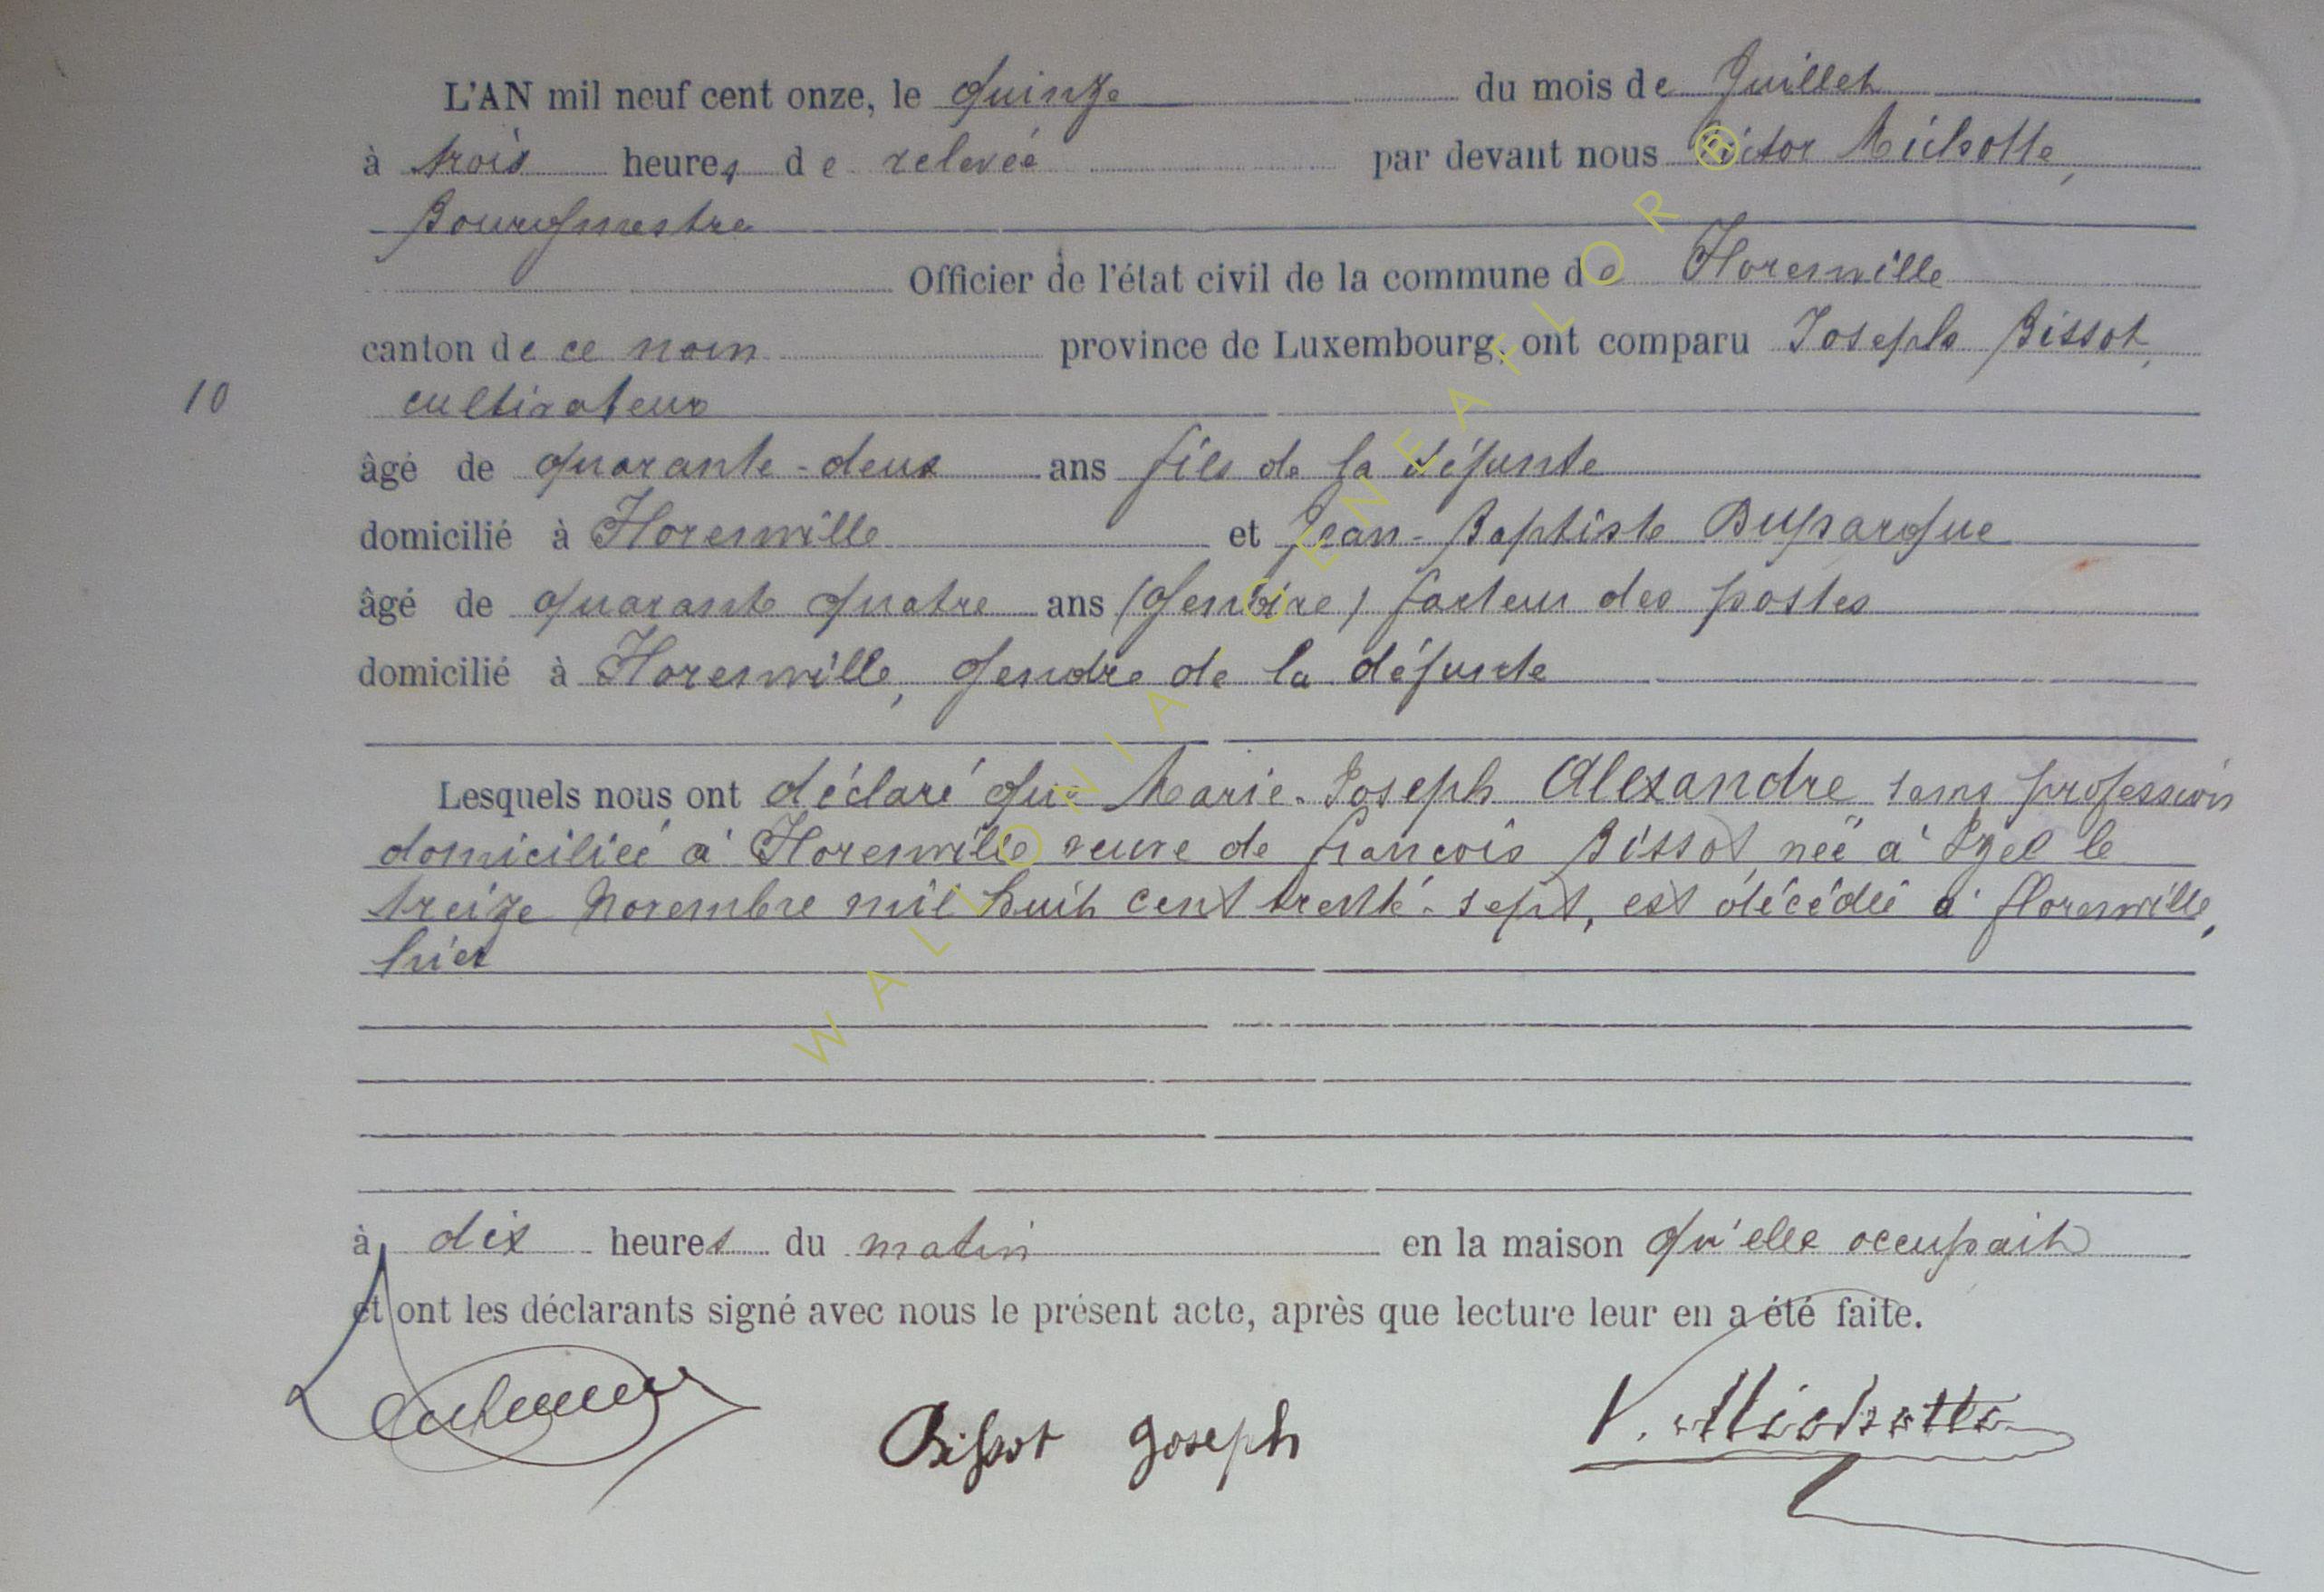 L'AN mil neuf cent onze, le quinze du mois de Juillet
à trois heures de relevée par devant nous Victor Michotte,
Bourgmestre
Officier de l'état civil de la commune de Florenville
canton de ce nom province de Luxembourg, ont comparu Joseph Bissot,
10 cultivateur
âgé de quarante-deux ans fils de la défunte
domicilié à Florenville et Jean-Baptiste Duparque
âgé de quarante quatre ans (gendre) facteur des postes
domicilié à Florenville, gendre de la défunte
Lesquels nous ont déclaré que Marie-Joseph Alexandre sans profession
domiciliée à Florenville veuve de françois Bissot, née à Izel le
treize Novembre mil huit cent trente-sept, est décédée à florenville,
hier
à dix heures du matin en la maison qu'elle occupait
et ont les déclarants signé avec nous le présent acte, après que lecture leur en a été faite.
Bissot Joseph V. Michotte
WALLONIA GENEAFLOR ®